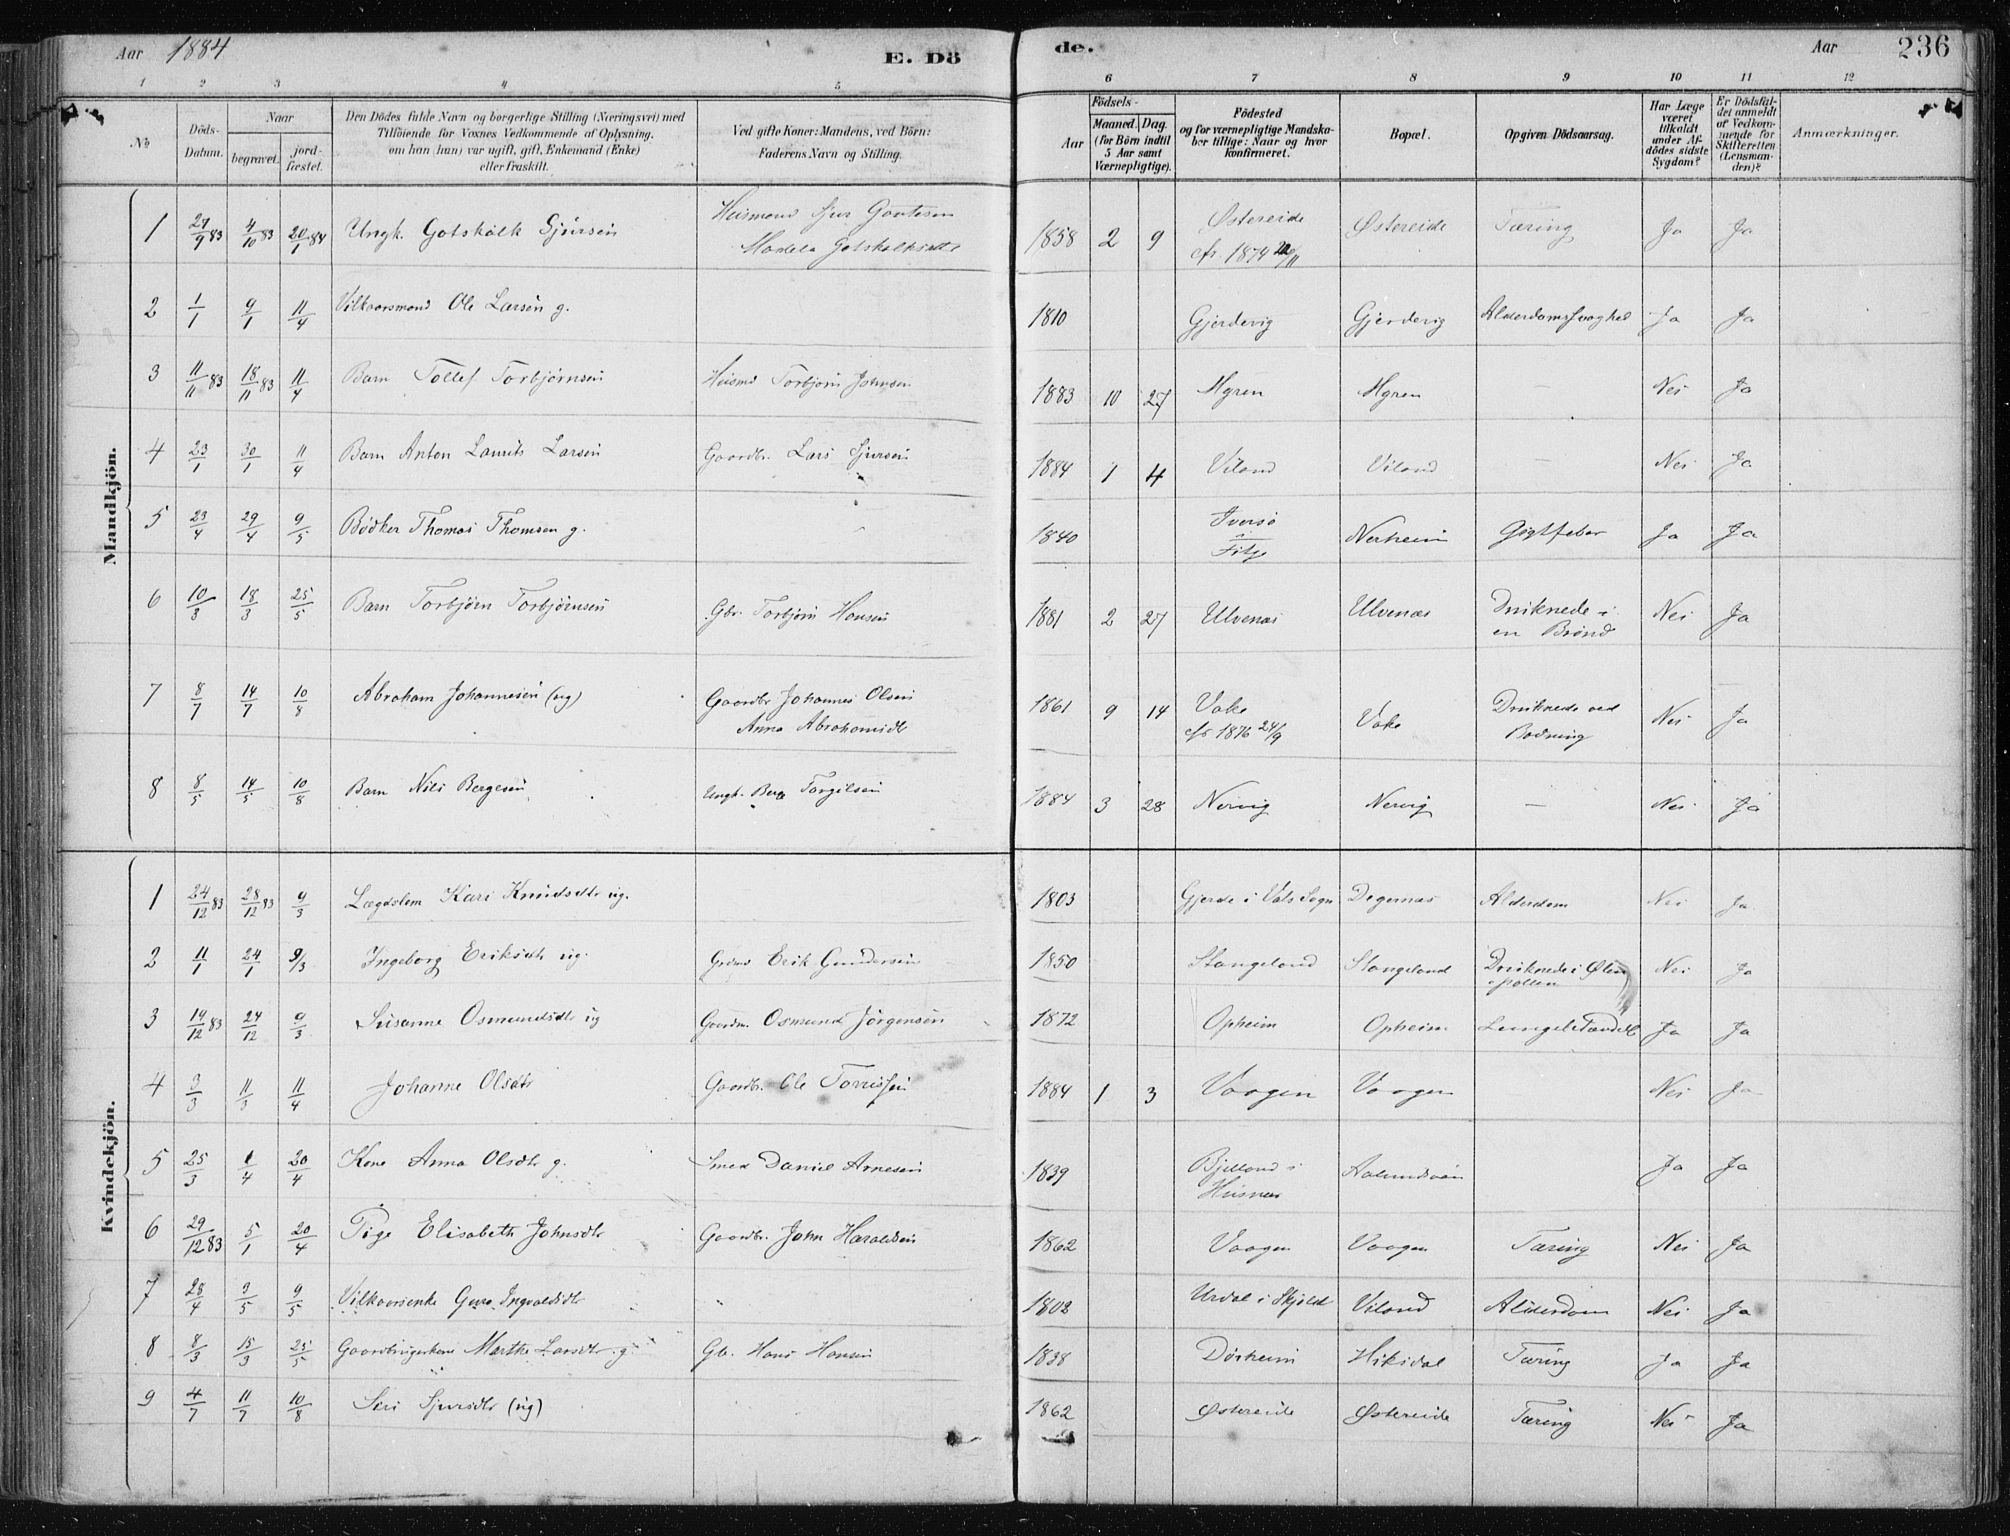 Aar 1884
E. Dö
de.
Aar
236
1 2 3 4 5 6 7 8 9 10 11 12
No
Döds-Datum.
Naar
begravet.
jordfæstet.
Den Dödes fulde Navn og borgerlige Stilling (Næringsvei) med
Tilföiende for Voxnes Vedkommende af Oplysning,
om han (hun) var ugift, gift, Enkemand (Enke)
eller fraskilt.
Ved gifte Koner: Mandens, ved Börn:
Faderens Navn og Stilling.
Födsels-
Aar
Maaned. Dag.
(for Børn indtil
5 Aar samt
Værnepligtige).
Födested
og for værnepligtige Mandskaber tillige: Naar og hvor
konfirmeret.
Bopæl.
Opgiven Dödsaarsag.
Har Læge
været
tilkaldt
under Afdødes sidste
Sygdom?
Er Dödsfaldet anmeldt
af Vedkommende for
Skifteretten
(Lensmanden)?
Anmærkninger.
Mandkjön.
1 27/9 83 4/10 83 20/1 84 Ungk. Gotskalk Sjursen Husmand Sjur Gautesen 1858 2 9 Østereide Østereide Tæring Ja Ja
Gotskalksdtr cfr. 1874
2 1/1 9/1 11/4 Vilkaarsmand Ole Larsen g. 1810 Gjerdevig Gjerdevig Alderdomssvaghed Ja Ja
3 11/11 83 18/11 83 11/4 Barn Tollef Torbjørnsen Husmd Torbjørn Johnsen 1883 10 27 Myren Myren — Nei Ja
4 23/1 30/1 11/4 Barn Anton Laurits Larsen Gaardbr. Lars Sjursen 1884 1 4 Viland Viland — Nei Ja
5 23/4 29/4 9/5 Bødker Thomas Thomsen g. 1840 Fitje Nerheim Gigtfeber Ja Ja
6 10/3 18/3 25/5 Barn Torbjørn Torbjørnsen Gbr. Torbjørn Hansen 1881 2 27 Ulvenæs Ulvenæs Druknede i Nei Ja
en Brønd
7 8/7 14/7 10/8 Abraham Johannesen (ug) Gaardbr Johannes Olsen 1861 9 14 Vake Vake Druknede ved Nei Ja
Anna Abrahamsdtr cfr 1876 24/9 Badning
8 8/5 14/5 10/8 Barn Nils Bergesen Ungk. Berge Torgilsen 1884 3 28 Nervig Nervig — Nei Ja
Kvindekjön.
1 24/12 83 28/12 83 9/3 Lægdslem Kari Knudsdtr ug. 1803 Gjerde i Vats Sogn Degernæs Alderdom Nei Ja
2 11/1 24/1 9/3 Ingeborg Eriksdtr ug. Erik Gundersen 1850 Stangeland Stangeland Druknede i Ølen Nei Ja
3 19/12 83 24/12 9/3 Susanne Osmundsdtr ug Gaardm. Osmund Jørgensen 1872 Opheim Opheim Ja Ja
4 3/3 11/3 11/4 Johanne Olsdtr Gaardbr. Ole Torrissen 1884 1 3 Vaagen Vaagen Nei Ja
5 25/3 1/4 20/4 Kone Anna Olsdtr g. Smed Daniel Arnesen 1839 Bjelland i Ja Ja
Husnæs
6 29/12 83 5/1 20/4 Pige Elisabeth Johnsdtr Gaardbr. John Haraldsen 1862 Vaagen Vaagen Tæring Nei Ja
7 28/4 3/5 9/5 Vilkaarsenke Guro Ingvaldsdtr 1808 Urdal i Skjold Viland Alderdom Nei Ja
8 8/3 15/3 25/5 Gaardbrugerkone Marthe Larsdtr g. Gb. Hans Hansen 1838 Dørheim Hikidal Tæring Ja Ja
9 4/7 11/7 10/8 Siri Sjursdtr (ug) 1862 Østereide Østereide Tæring Nei Ja